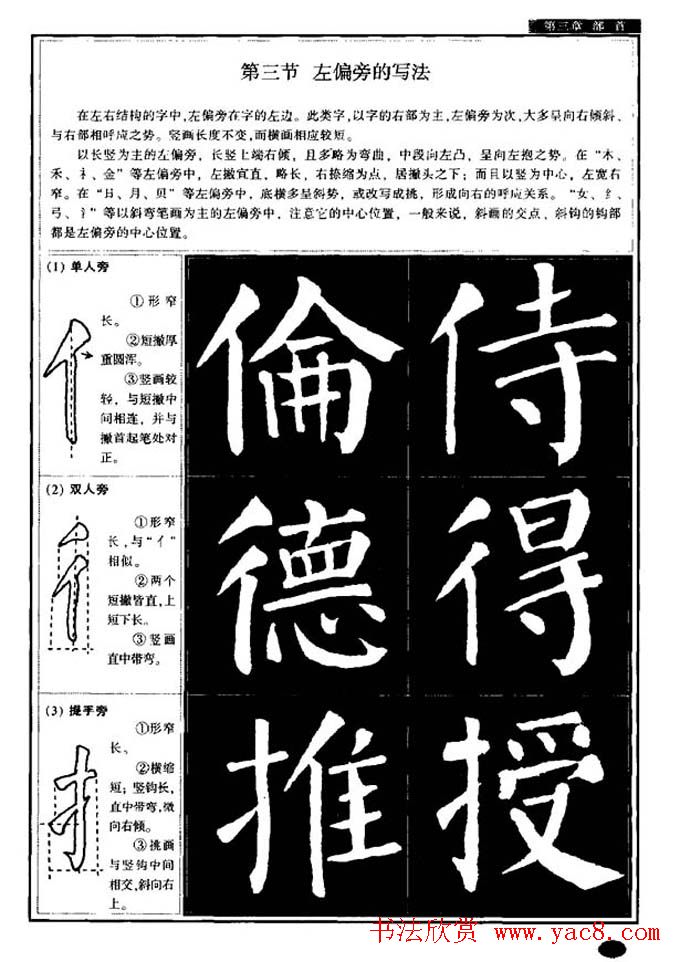 第三章 部 首
第三节 左偏旁的写法
在左右结构的字中,左偏旁在字的左边。此类字,以字的右部为主,左偏旁为次,大多呈向右倾斜、
与右部相呼应之势。竖画长度不变,而横画相应较短。
以长竖为主的左偏旁，长竖上端右倾，且多略为弯曲，中段向左凸，呈向左抱之势。在“木、
禾、礻、金”等左偏旁中，左撇宜直，略长，右捺缩为点，居撇头之下；而且以竖为中心，左宽右
窄。在“日、月、贝”等左偏旁中，底横多呈斜势，或改写成挑，形成向右的呼应关系。“女、纟、
弓、犭”等以斜弯笔画为主的左偏旁中，注意它的中心位置，一般来说，斜画的交点、斜钩的钩部
都是左偏旁的中心位置。
(1) 单人旁
①形窄
长。
②短撇厚
重圆浑。
③竖画较
轻，与短撇中
间相连，并与
撇首起笔处对
正。
倫 侍
(2) 双人旁
①形窄
长,与“亻”
相似。
②两个
短撇皆直,上
短下长。
③竖画
直中带弯。
德 得
(3) 提手旁
①形窄
长。
②横缩
短；竖钩长,
直中带弯,微
向右倾。
③挑画
与竖钩中间
相交,斜向右
上。
推 授
书法欣赏 www.yac8.com